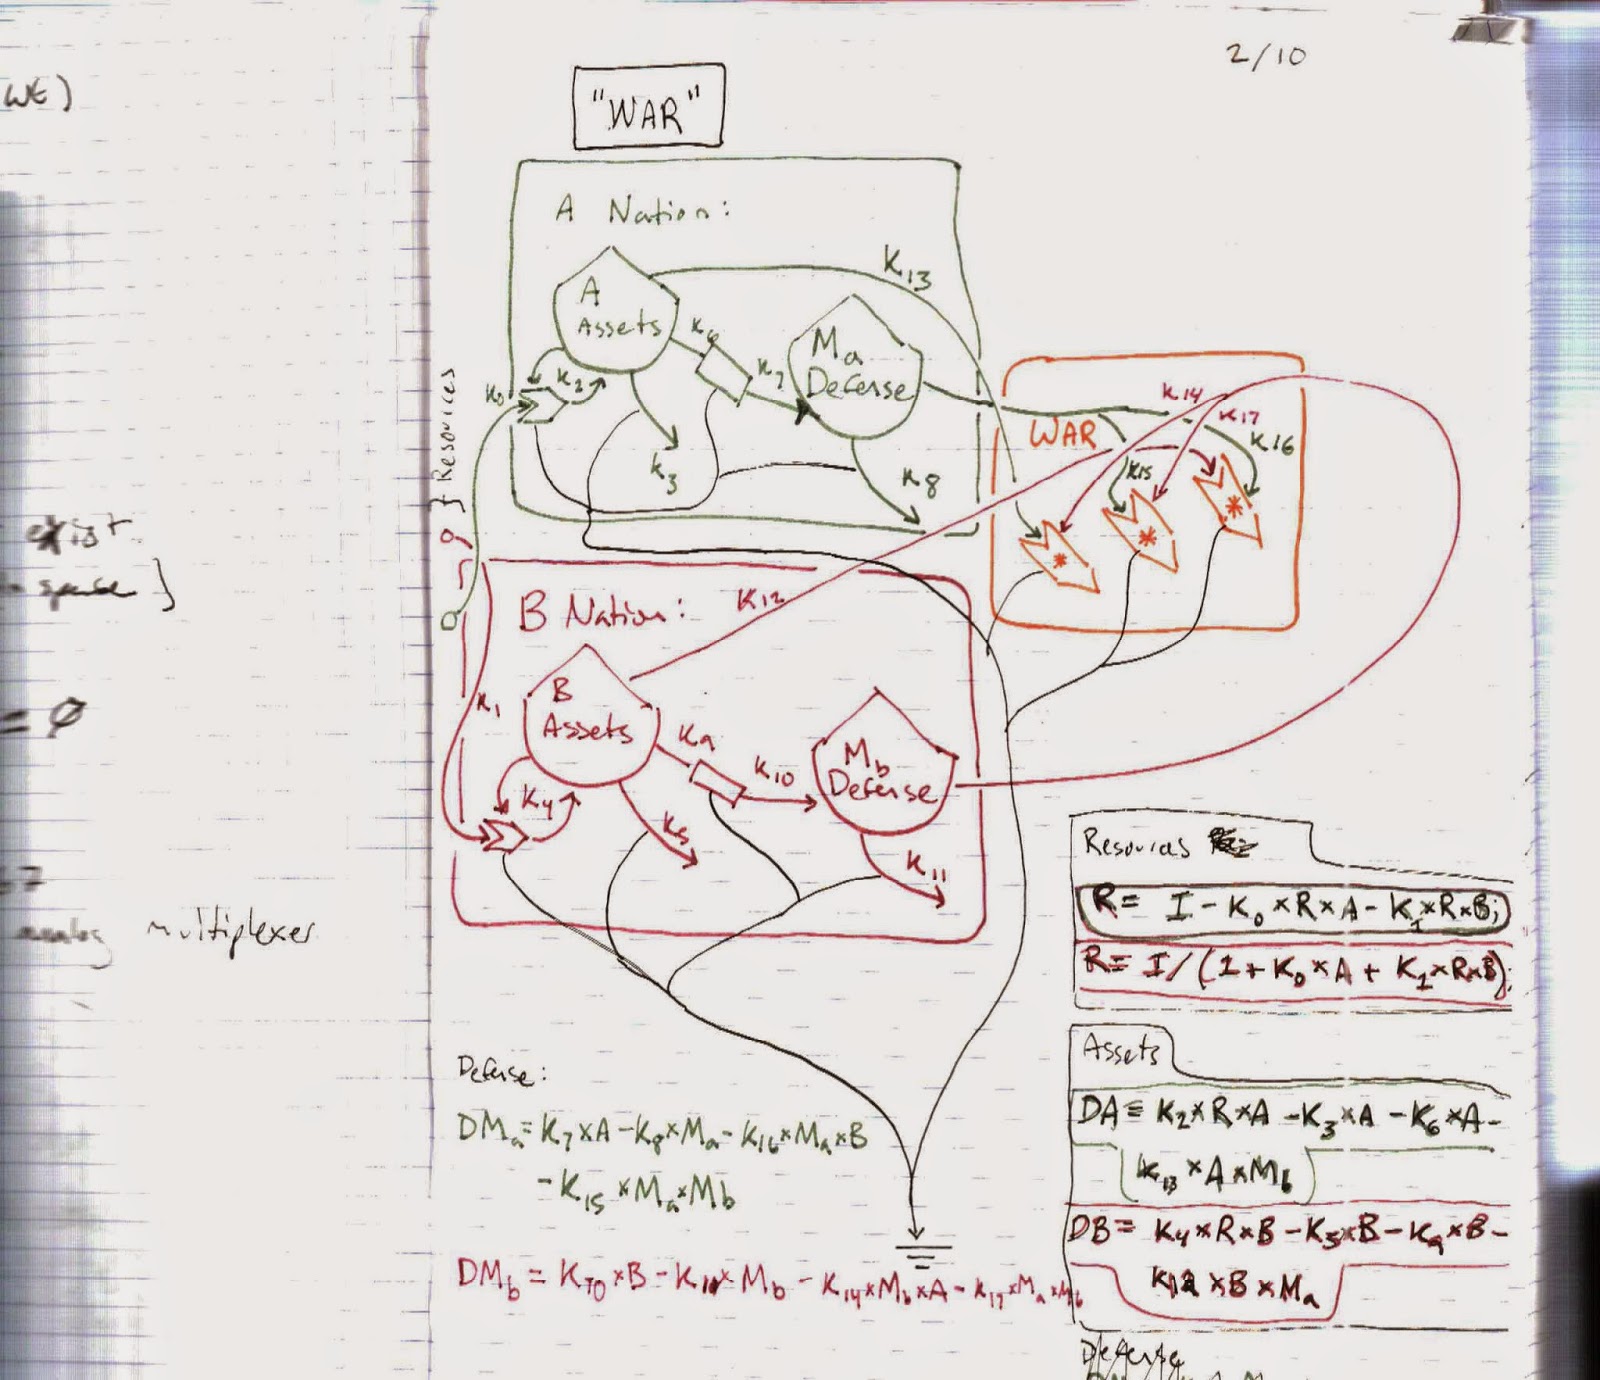 WE)
exist
space ]
= Ø
multiplexer
2/10
"WAR"
A Nation:
K13
A
Assets
K6
K7
Ma
Defense
K0
K2
K3
K8
} Resources
WAR
K14
K17
K16
K15
B Nation:
K12
K1
B
Assets
K9
K10
Mb
Defense
K4
K5
K11
Resources
R= I - K0 × R × A - K1 × R × B;
R= I/(1 + K0 × A + K1 × R × B);
Assets
DA = K2 × R × A - K3 × A - K6 × A -
K13 × A × Mb
DB = K4 × R × B - K5 × B - K9 × B -
K12 × B × Ma
Defense
Defense:
DMa = K7 × A - K8 × Ma - K16 × Ma × B
- K15 × Ma × Mb
DMb = K10 × B - K11 × Mb - K14 × Mb × A - K17 × Ma × Mb